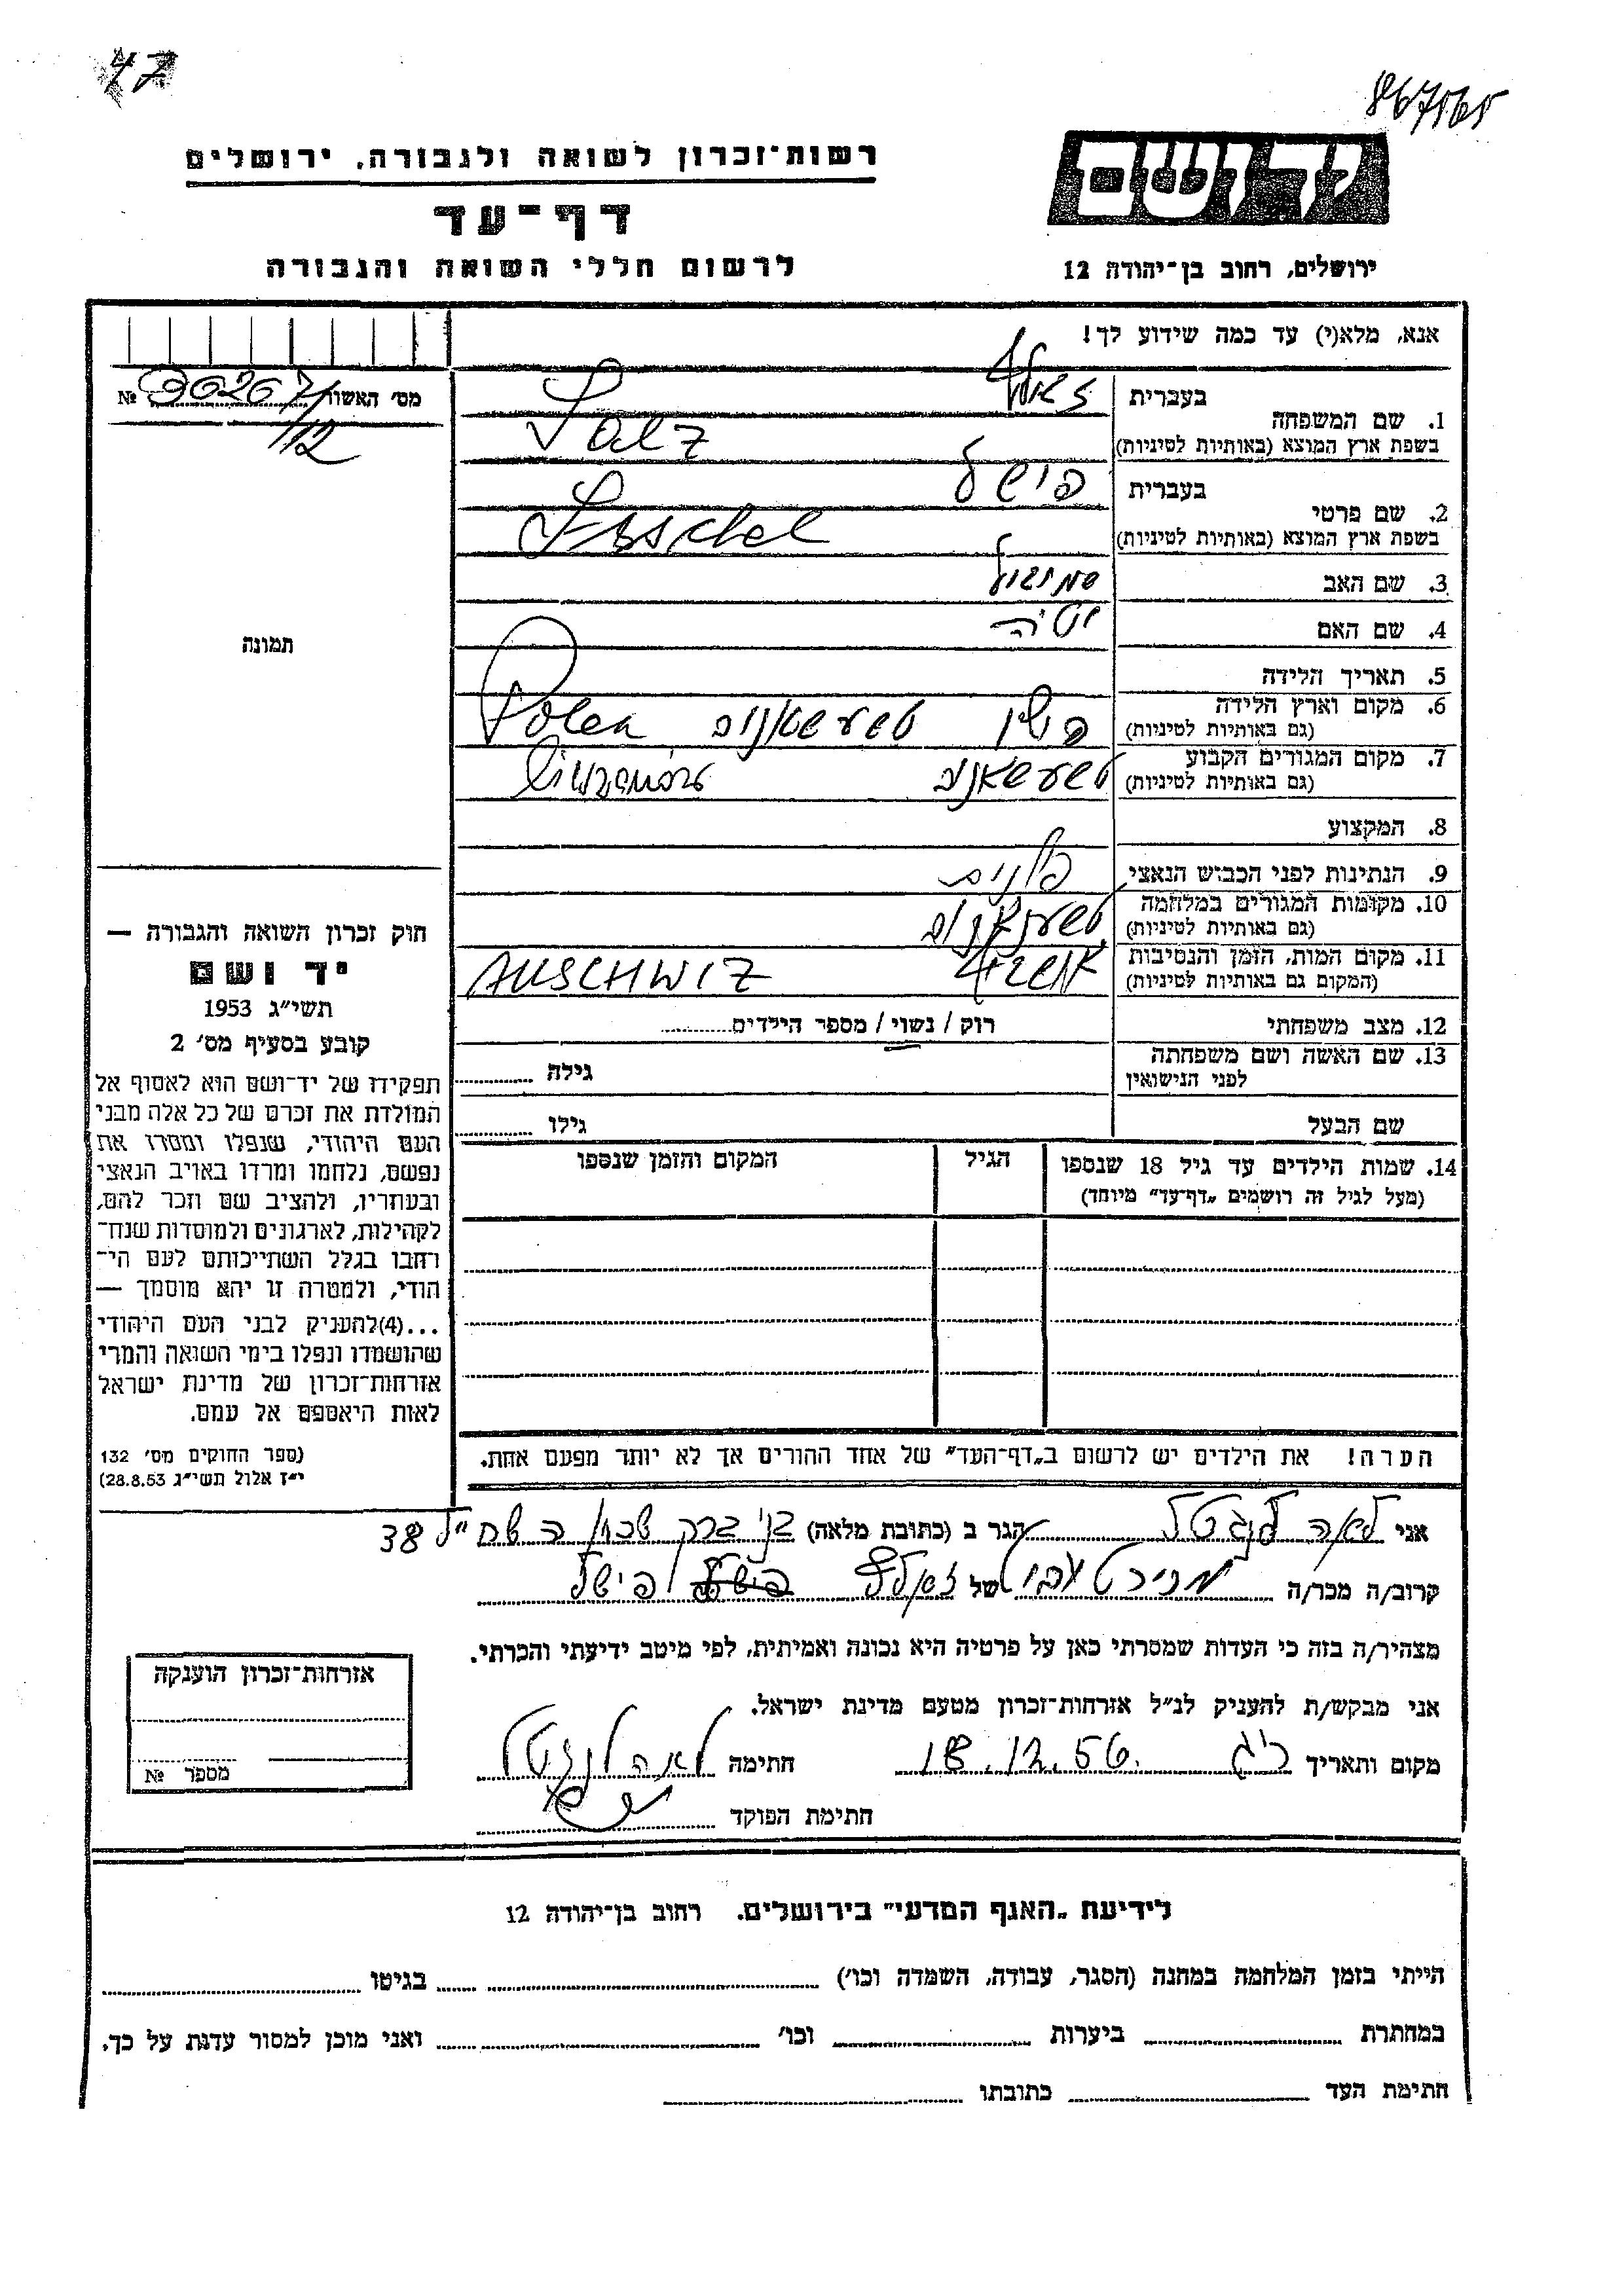 47
867565
רשות־זכרון לשואה ולגבורה, ירושלים
דף־עד
לרשום חללי השואה והגבורה
יד ושם
ירושלים, רחוב בן־יהודה 12
אנא, מלא(י) עד כמה שידוע לך!
מס׳ האשור № 30267/
12
בעברית
1. שם המשפחה
בשפת ארץ המוצא (באותיות לטיניות) Salz
בעברית פישל
2. שם פרטי
בשפת ארץ המוצא (באותיות לטיניות) Fischel
3. שם האב
4. שם האם
5. תאריך הלידה
6. מקום וארץ הלידה פוילין טשעשאנוב Polen
(גם באותיות לטיניות)
7. מקום המגורים הקבוע טשעשאנוב
(גם באותיות לטיניות)
8. המקצוע
9. הנתינות לפני הכבוש הנאצי פולנית
10. מקומות המגורים במלחמה טשעשאנוב
(גם באותיות לטיניות)
11. מקום המות, הזמן והנסיבות AUSCHWIZ
(המקום גם באותיות לטיניות)
12. מצב משפחתי רוק / נשוי / מספר הילדים
13. שם האשה ושם משפחתה
לפני הנישואין גילה
שם הבעל גילו
14. שמות הילדים עד גיל 18 שנספו הגיל המקום והזמן שנספו
(מעל לגיל זה רושמים „דף־עד” מיוחד)
הערה! את הילדים יש לרשום ב„דף־העד” של אחד ההורים אך לא יותר מפעם אחת.
תמונה
חוק זכרון השואה והגבורה —
יד ושם
תשי״ג 1953
קובע בסעיף מס׳ 2
תפקידו של יד־ושם הוא לאסוף אל
המולדת את זכרם של כל אלה מבני
העם היהודי, שנפלו ומסרו את
נפשם, נלחמו ומרדו באויב הנאצי
ובעוזריו, ולהציב שם וזכר להם,
לקהילות, לארגונים ולמוסדות שנח־
רבו בגלל השתייכותם לעם הי־
הודי, ולמטרה זו יהא מוסמך —
...(4)להעניק לבני העם היהודי
שהושמדו ונפלו בימי השואה והמרי
אזרחות־זכרון של מדינת ישראל
לאות היאספם אל עמם.
(ספר החוקים מס׳ 132
י״ז אלול תשי״ג 28.8.53)
אני לאה הגר ב (כתובת מלאה) בני ברק שכון ה 38
קרוב/ה מכר/ה של פישל
מצהיר/ה בזה כי העדות שמסרתי כאן על פרטיה היא נכונה ואמיתית, לפי מיטב ידיעתי והכרתי.
אני מבקש/ת להעניק לנ״ל אזרחות־זכרון מטעם מדינת ישראל.
מקום ותאריך 18.12.56 חתימה לאה
חתימת הפוקד
אזרחות־זכרון הוענקה
מספר №
לידיעת „האגף המדעי” בירושלים. רחוב בן־יהודה 12
הייתי בזמן המלחמה במחנה (הסגר, עבודה, השמדה וכו׳) בגיטו
במחתרת ביערות וכו׳ ואני מוכן למסור עדות על כך.
חתימת העד כתובתו